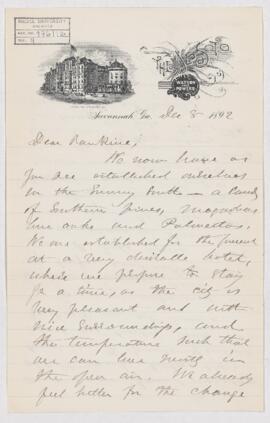 The De Soto
Watson & Powers
Savannah Ga. Dec 8 1892
Dear Rankine,
We now have as
you see established ourselves
in the Sunny South — a land
of Southern pines, magnolias
live oaks and Palmettos.
We are established for the present
at a very desirable hotel,
where we propose to stay
for a time, as the city is
very pleasant and with
nice surroundings, and
the temperature such that
we can live mostly in
the open air. We already
feel better for the change